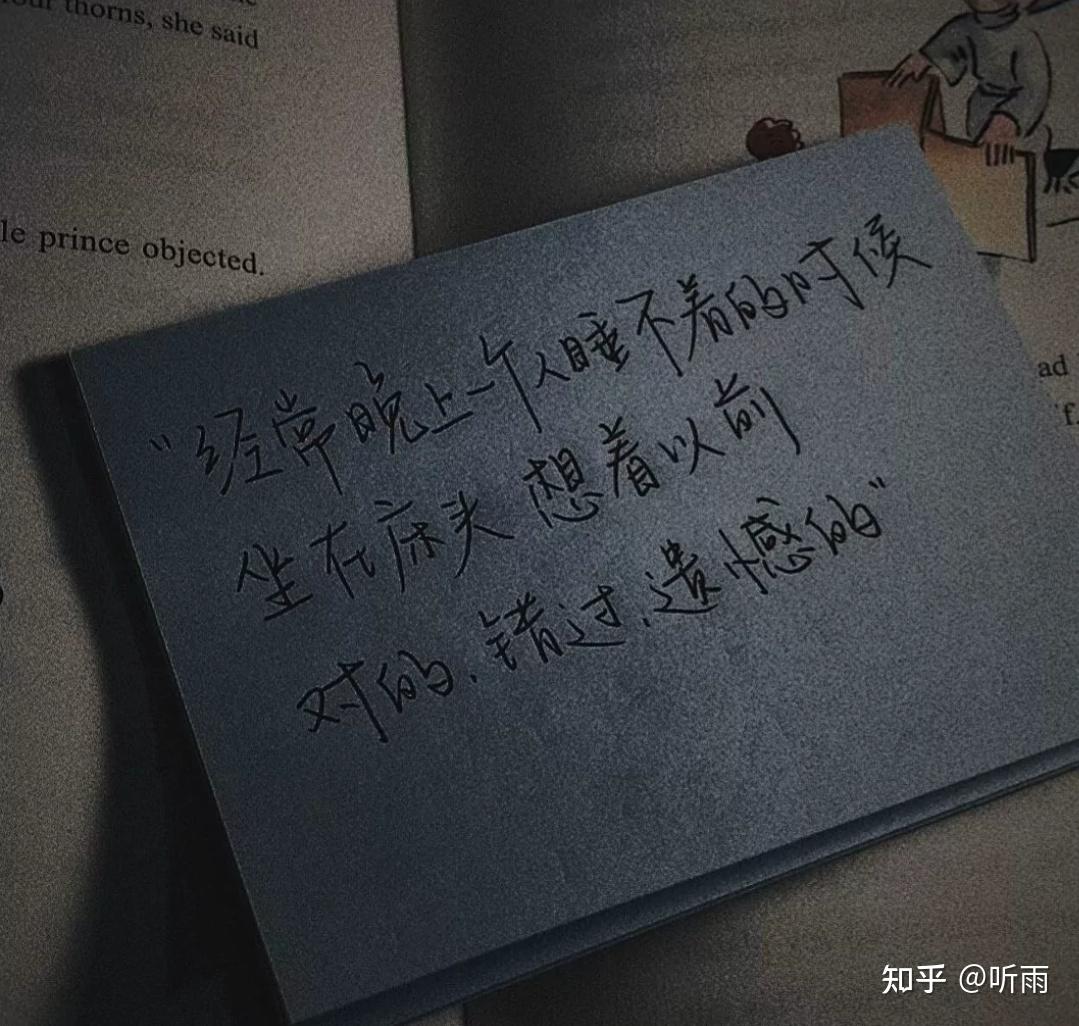 our thorns, she said
le prince objected.
“经常晚上一个人睡不着的时候
坐在床头 想着以前
对的.错过.遗憾的”
ad
知乎 @听雨